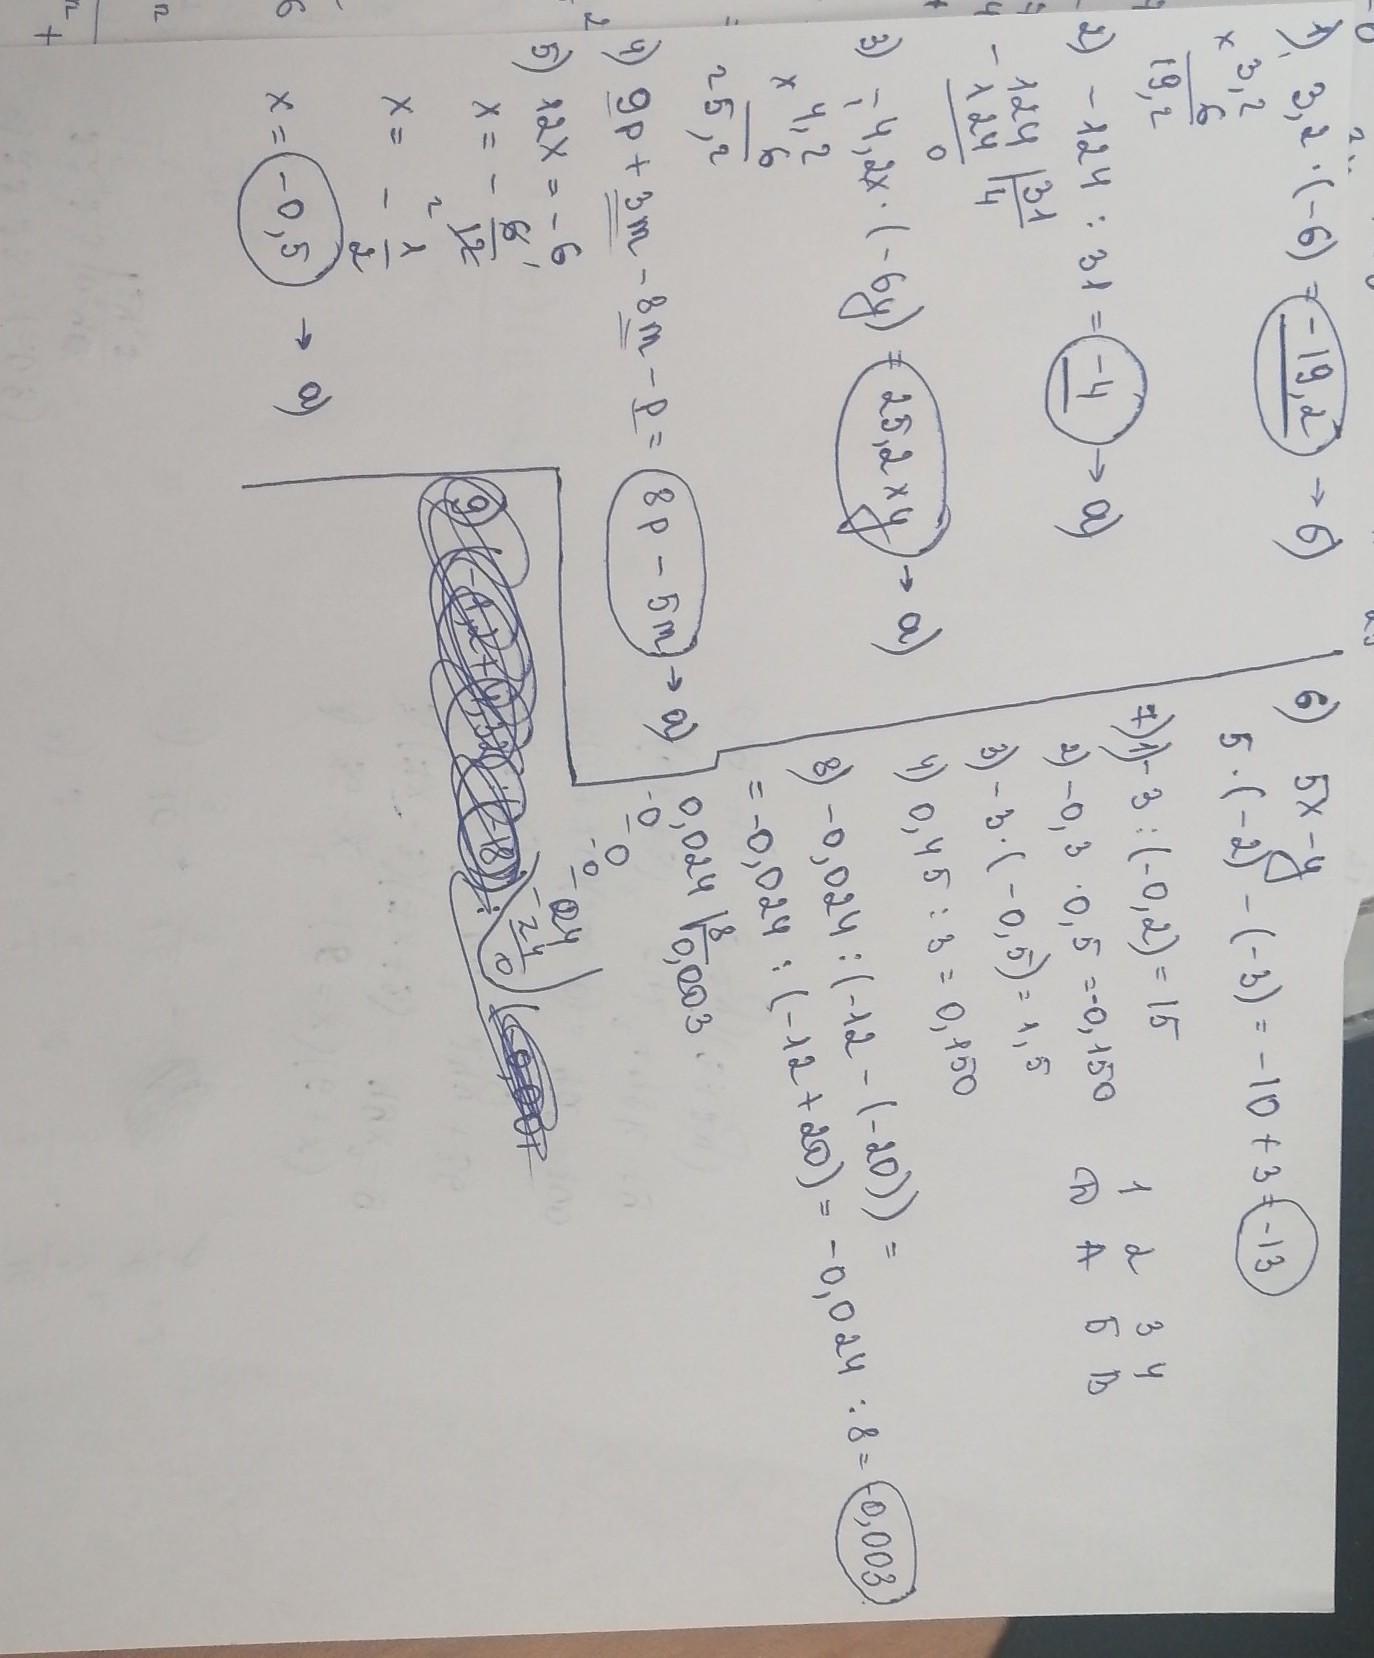 1) 3,2 · (-6) = -19,2 → б)
x 3,2
6
19,2
2) -124 : 31 = -4 → а)
- 124 | 31
124 4
0
3) -4,2x · (-6y) = 25,2xy → а)
x 4,2
6
25,2
4) 9p + 3m - 8m - p = 8p - 5m → а)
5) 12x = -6
x = - 6 1
12 2
x = - 1
2
x = -0,5 → а)
6) 5x - y
5 · (-2) - (-3) = -10 + 3 = -13
7) 1) -3 : (-0,2) = 15
2) -0,3 · 0,5 = -0,150
3) -3 · (-0,5) = 1,5
4) 0,45 : 3 = 0,150
1 2 3 4
А Б В
8) -0,024 : (-12 - (-20)) =
= -0,024 : (-12 + 20) = -0,024 : 8 = -0,003
0,024 | 8
-0 0,003
0
-0
024
- 24
0